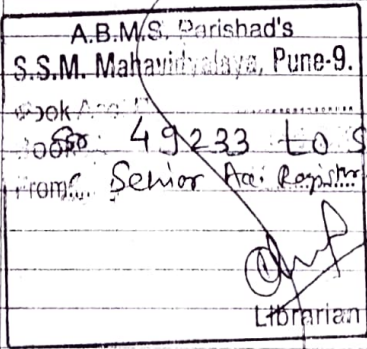 A.B.M.S. Parishad's
S.S.M. Mahavidyalaya, Pune-9.
Book
49233 to
From Senior Acc. Register
Librarian